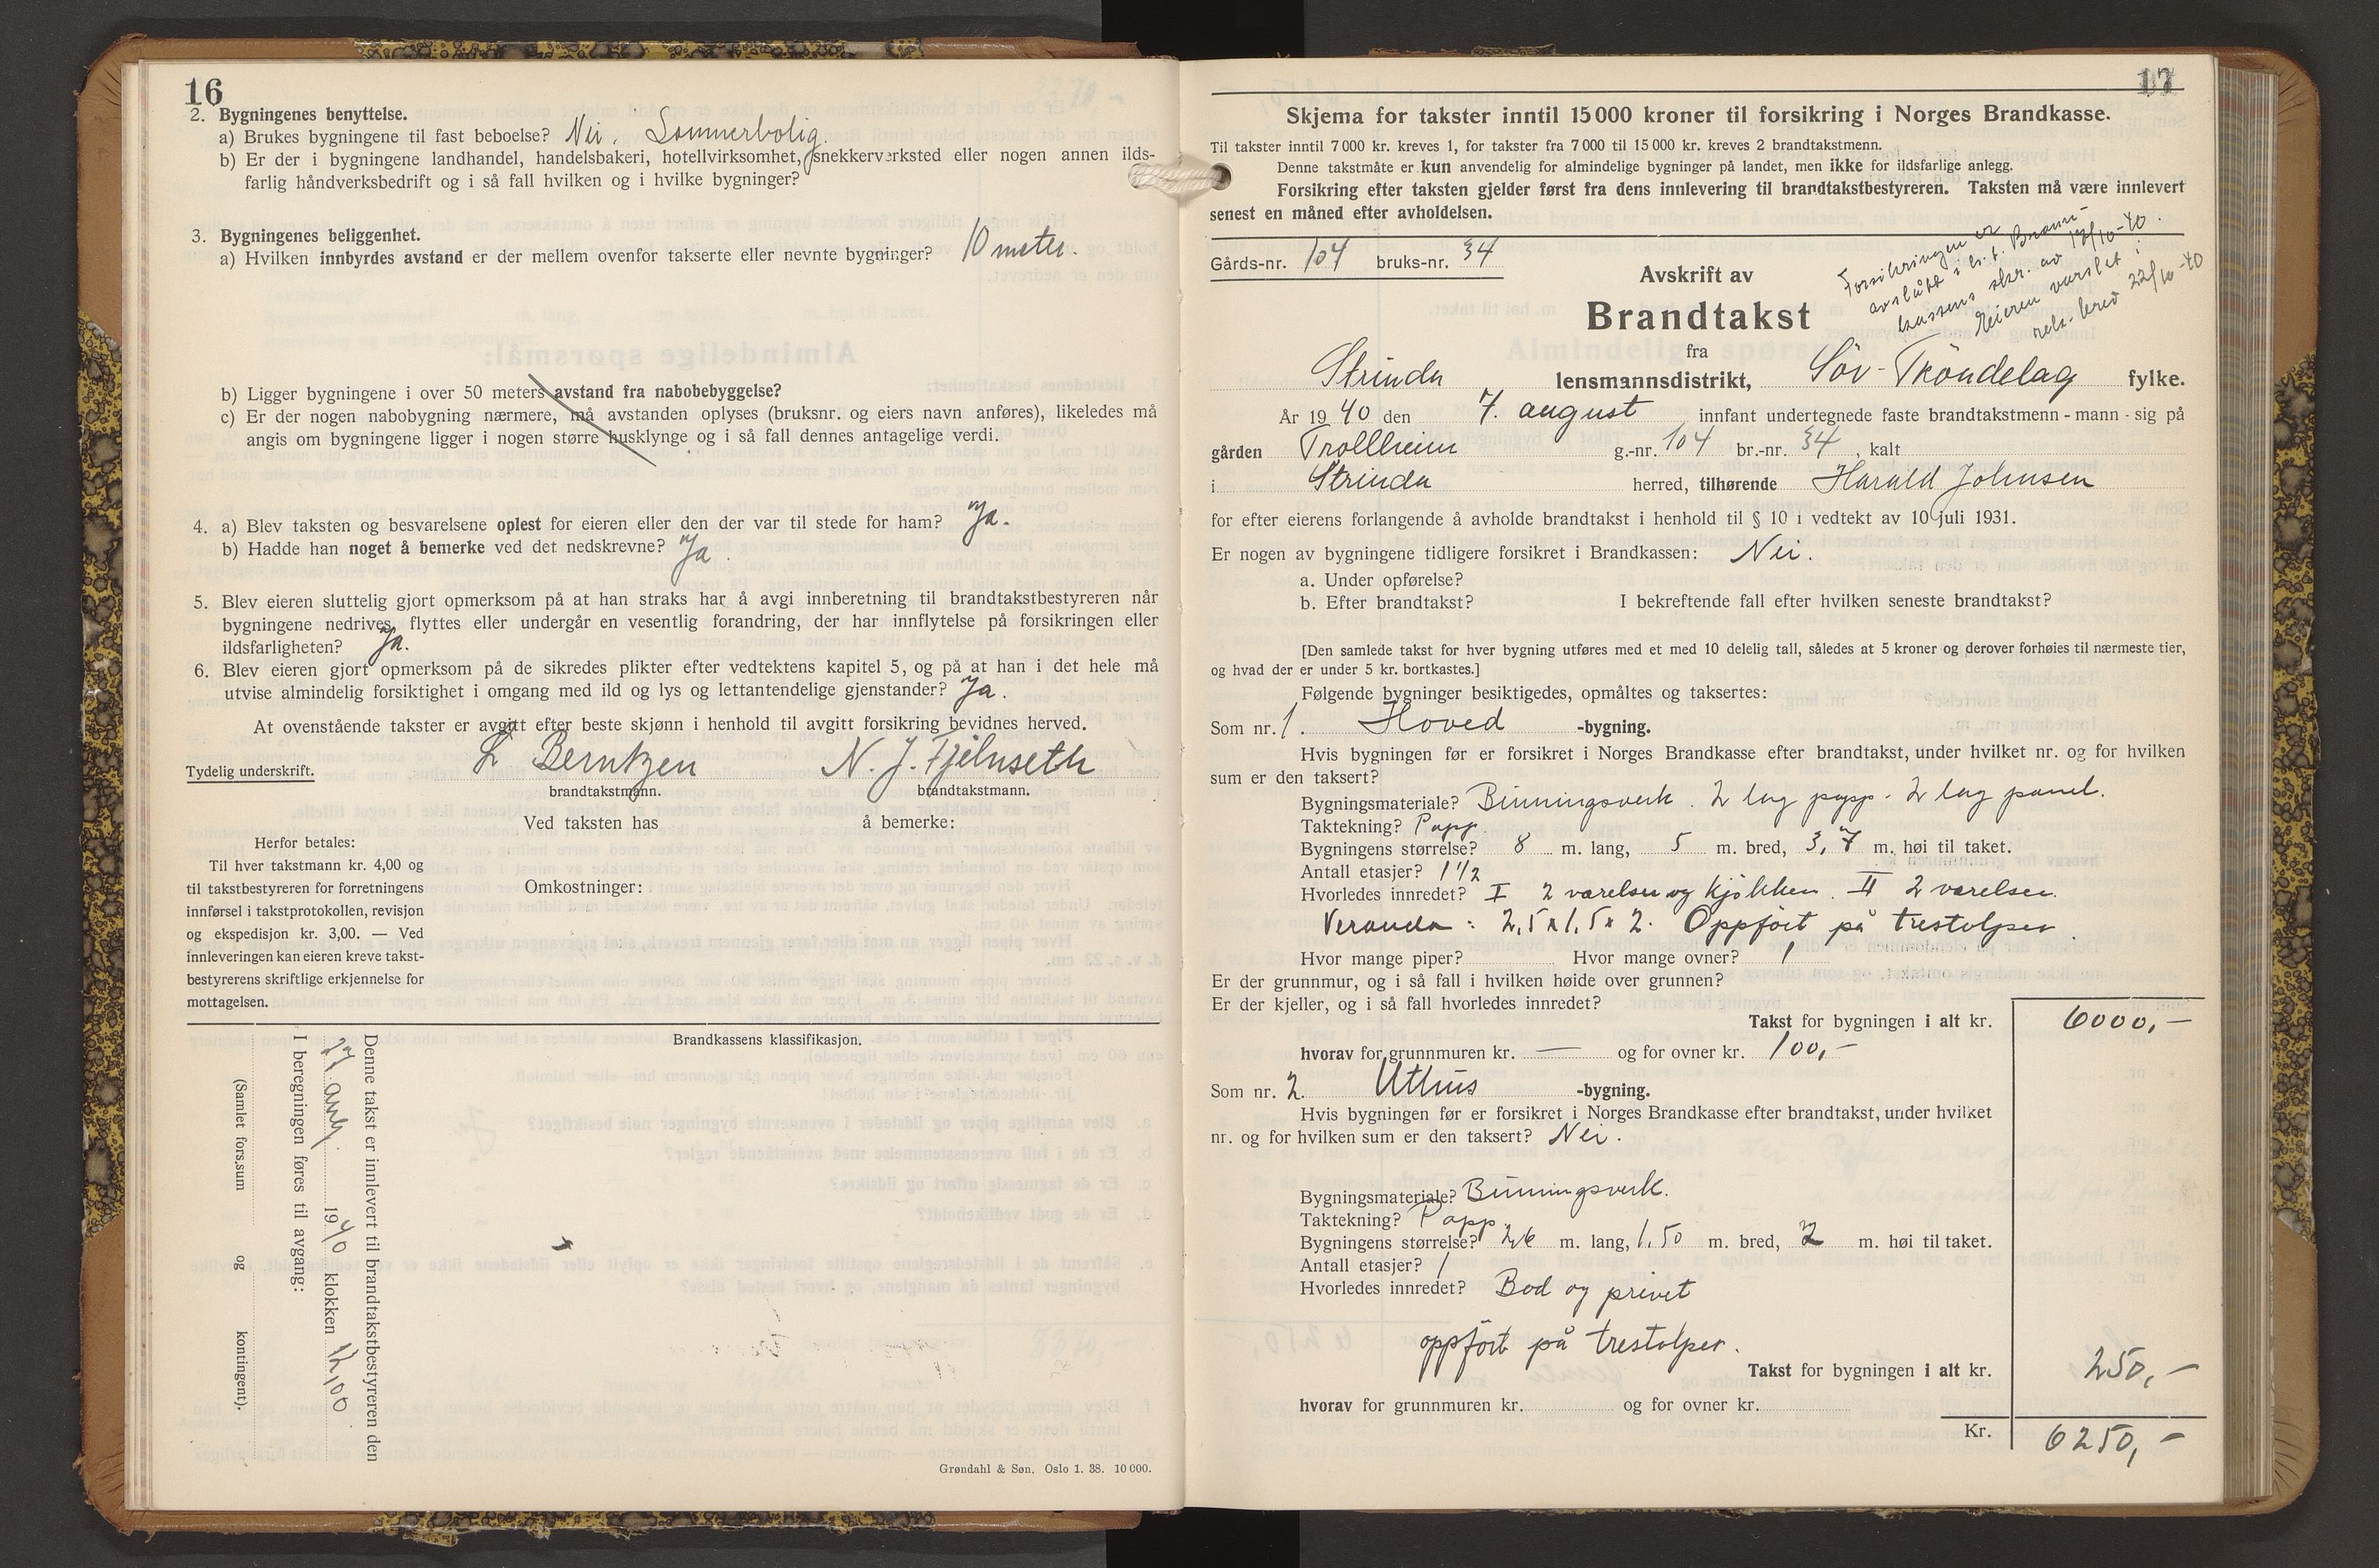 16
2. Bygningenes benyttelse.
a) Brukes bygningene til fast beboelse? Nei. Sommerbolig.
b) Er der i bygningene landhandel, handelsbakeri, hotellvirksomhet, snekkerverksted eller nogen annen ilds-
farlig håndverksbedrift og i så fall hvilken og i hvilke bygninger?
3. Bygningenes beliggenhet.
a) Hvilken innbyrdes avstand er der mellem ovenfor takserte eller nevnte bygninger? 10 meter.
b) Ligger bygningene i over 50 meters avstand fra nabobebyggelse?
c) Er der nogen nabobygning nærmere, må avstanden oplyses (bruksnr. og eiers navn anføres), likeledes må
angis om bygningene ligger i nogen større husklynge og i så fall dennes antagelige verdi.
4. a) Blev taksten og besvarelsene oplest for eieren eller den der var til stede for ham? Ja.
b) Hadde han noget å bemerke ved det nedskrevne? Ja
5. Blev eieren sluttelig gjort opmerksom på at han straks har å avgi innberetning til brandtakstbestyreren når
bygningene nedrives, flyttes eller undergår en vesentlig forandring, der har innflytelse på forsikringen eller
ildsfarligheten? Ja.
6. Blev eieren gjort opmerksom på de sikredes plikter efter vedtektens kapitel 5, og på at han i det hele må
utvise almindelig forsiktighet i omgang med ild og lys og lettantendelige gjenstander? Ja.
At ovenstående takster er avgitt efter beste skjønn i henhold til avgitt forsikring bevidnes herved.
Tydelig underskrift. L Berntzen N. J. Fjelnseth
brandtakstmann. brandtakstmann.
Ved taksten has å bemerke:
Herfor betales:
Til hver takstmann kr. 4,00 og
til takstbestyreren for forretningens
innførsel i takstprotokollen, revisjon
og ekspedisjon kr. 3,00. — Ved
innleveringen kan eieren kreve takst-
bestyrerens skriftlige erkjennelse for
mottagelsen.
Omkostninger:
Brandkassens klassifikasjon.
Denne takst er innlevert til brandtakstbestyreren den
27 aug. 1940 klokken 12,00
I beregningen føres til avgang:
(Samlet fors.sum og kontingent).
Grøndahl & Søn. Oslo 1. 38. 10 000.
17
Skjema for takster inntil 15 000 kroner til forsikring i Norges Brandkasse.
Til takster inntil 7 000 kr. kreves 1, for takster fra 7 000 til 15 000 kr. kreves 2 brandtakstmenn.
Denne takstmåte er kun anvendelig for almindelige bygninger på landet, men ikke for ildsfarlige anlegg.
Forsikring efter taksten gjelder først fra dens innlevering til brandtakstbestyreren. Taksten må være innlevert
senest en måned efter avholdelsen.
Gårds-nr. 104 bruks-nr. 34
Forsikringen er
avslått i h. t. Brann-
kassens skr. av 12/10-40.
Eieren varslet i
rek. brev 22/10-40
Avskrift av
Brandtakst
fra
Strinda lensmannsdistrikt, Sör-Tröndelag fylke.
År 1940 den 7. august innfant undertegnede faste brandtakstmenn - mann - sig på
gården Trollheim g.-nr. 104 br.-nr. 34, kalt
i Strinda herred, tilhørende Harald Johnsen
for efter eierens forlangende å avholde brandtakst i henhold til § 10 i vedtekt av 10 juli 1931.
Er nogen av bygningene tidligere forsikret i Brandkassen: Nei.
a. Under opførelse?
b. Efter brandtakst? I bekreftende fall efter hvilken seneste brandtakst?
[Den samlede takst for hver bygning utføres med et med 10 delelig tall, således at 5 kroner og derover forhøies til nærmeste tier,
og hvad der er under 5 kr. bortkastes.]
Følgende bygninger besiktigedes, opmåltes og taksertes:
Som nr. 1. Hoved -bygning.
Hvis bygningen før er forsikret i Norges Brandkasse efter brandtakst, under hvilket nr. og for hvilken
sum er den taksert?
Bygningsmateriale? Binningsverk. 2 lag papp. 2 lag panel.
Taktekning? Papp.
Bygningens størrelse? 8 m. lang, 5 m. bred, 3,7 m. høi til taket.
Antall etasjer? 1 1/2
Hvorledes innredet? I 2 værelser og kjökken. II 2 værelser.
Veranda: 2,5 x 1,5 x 2. Oppfört på trestolper.
Hvor mange piper? Hvor mange ovner? 1
Er der grunnmur, og i så fall i hvilken høide over grunnen?
Er der kjeller, og i så fall hvorledes innredet?
Takst for bygningen i alt kr. 6000,-
hvorav for grunnmuren kr. — og for ovner kr. 100,-
Som nr. 2. Uthus -bygning.
Hvis bygningen før er forsikret i Norges Brandkasse efter brandtakst, under hvilket
nr. og for hvilken sum er den taksert? Nei.
Bygningsmateriale? Binningsverk.
Taktekning? Papp.
Bygningens størrelse? 2,6 m. lang, 1,50 m. bred, 2 m. høi til taket.
Antall etasjer? 1
Hvorledes innredet? Bod og privet
oppfört på trestolper.
Takst for bygningen i alt kr. 250,-
hvorav for grunnmuren kr. og for ovner kr.
Kr. 6250,-